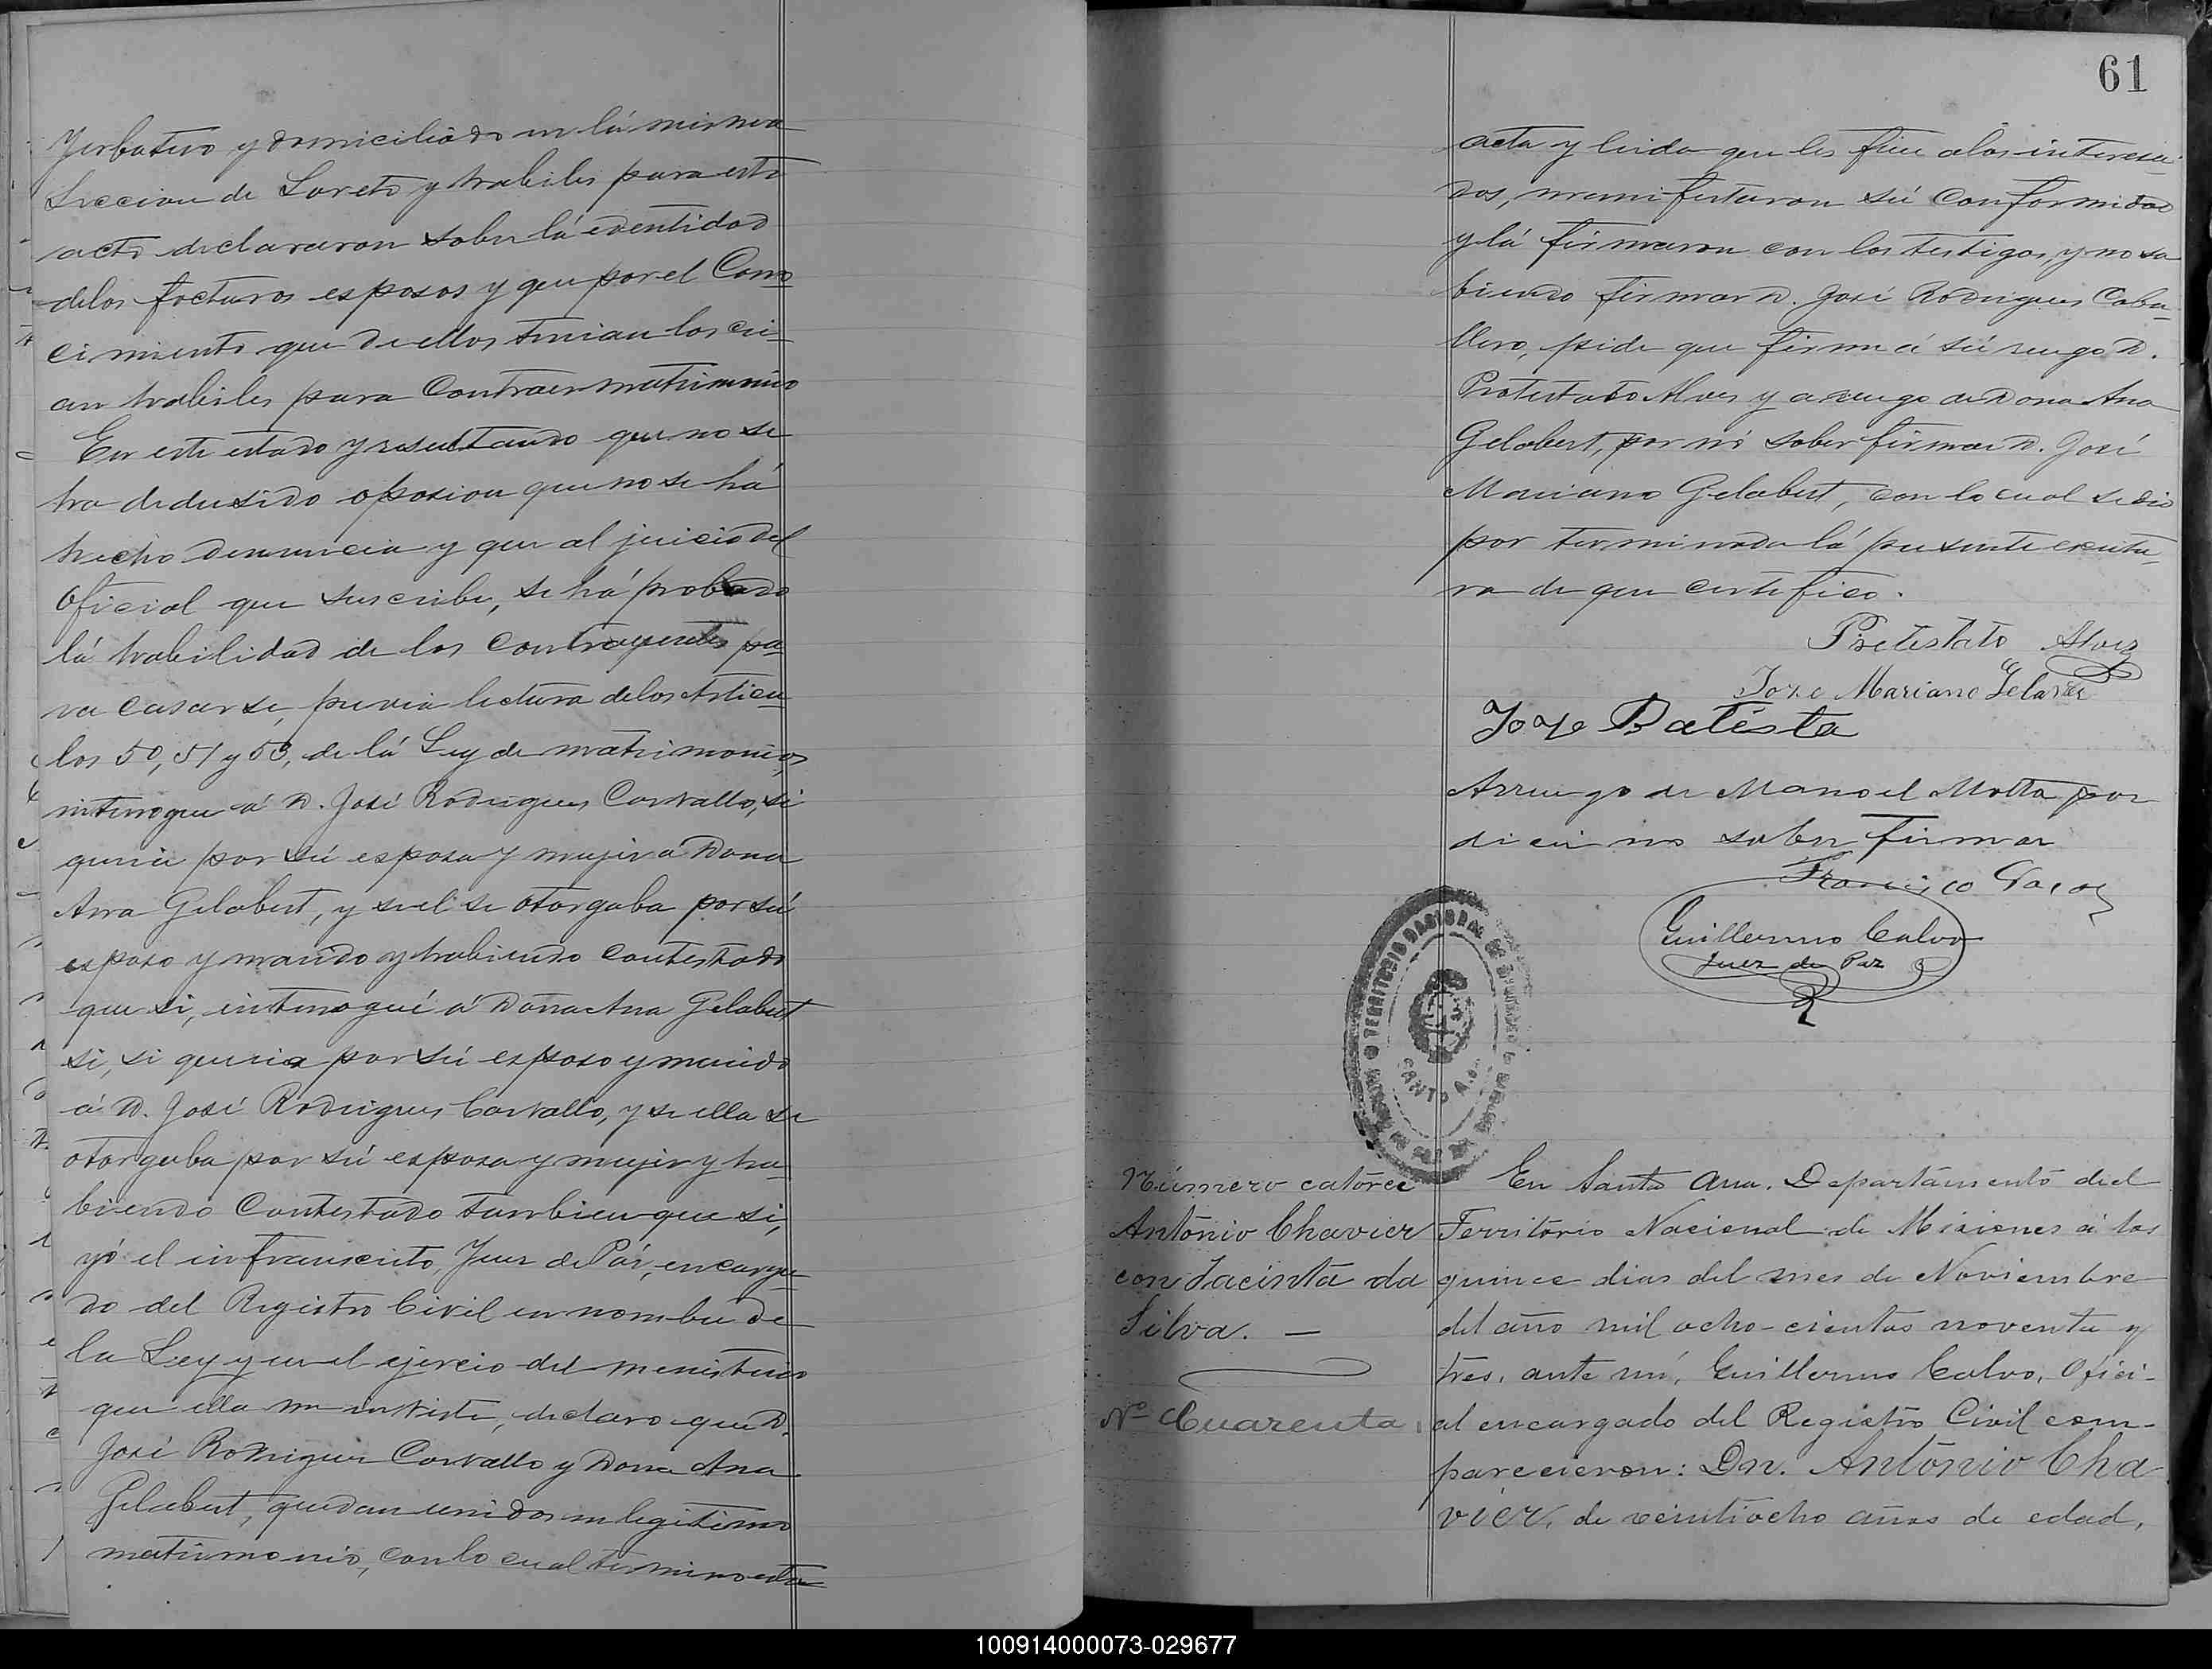 Yerbatero y domiciliado en lá misma
Seccion de Loreto y habiles para este
acto declararon sobre lá edentidad
delos focturos esposos y que por el Cono
cimiento que de ellos tenian los cre
an habiles para Contraer matrimonio
En este estado y resultando que no se
ha dedusido oposion que no se há
hecho denuncia y que al juicio del
Oficial que suscribe, se há probado
lá habilidad de los Contrayentes pa
ra casarse, previa lectura delos Articu
los 50, 51 y 53, de lá Ley de matrimonio,
interogue á D. José Rodrigues Carvallo, si
queria por sú esposa y mujer á Dona
Ana Gelabert, y si el se otorgaba por sú
esposo y marido y habiendo contestado
que si, interogué á Dona Ana Gelabert
si, si queria por sú esposo y marido
á D. José Rodrigues Carvallo, y si ella se
otorgaba por sú esposa y mujer y ha
biendo Contestado tambien que si,
yó el infranscrito, Juez de Páz, encarga
do del Registro Civil en nombre de
la Ley y en el ejercio del menisterio
que ella me enviste, declaro que D.
José Rodrigues Carvallo y Dona Ana
Gelabert, quedan unidos en legitimo
matrimonio, con lo cual termino esta
61
acta y leida que les fue alos interesa
dos, manifestaron sú Conformidad
y lá firmaron con los testigos, y no sa
biendo firmar D. José Rodrigues Caba
llero, pide que firme á sú ruego D.
Protestato Alves y a ruego de Dona Ana
Gelabert, por nó saber firmar D. José
Mariano Gelabert, con lo cual se dió
por terminada lá presente escritu
ra de que certifico.
Pretestato Alvez
Joze Mariano Gelaber
Joze Batista
Arruego de Manoel Motta por
dicir no saber firmar
Francisco
Guillermo Calvo
Juez de Paz
TERRITORIO NACIONAL DE
SANTA A
Número catorce
Antonio Chavier
con Jacinta da
Silva. —
Nº Cuarenta.
En Santa Ana. Departamento del
Territorio Nacional de Misiones á los
quince dias del mes de Noviembre
del año mil ocho-cientos noventa y
tres, ante mí, Guillermo Calvo, Ofici-
al encargado del Registro Civil com-
parecieron: Dn. Antonio Cha
vier, de veintiocho años de edad,
100914000073-029677